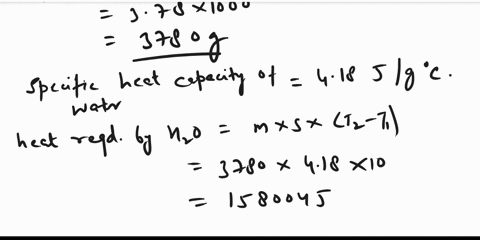 = 3.78 × 1000
= 3780 g
Specific heat capacity of water = 4.18 J/g°C.
heat reqd. by H2O = m × s × (T2 - T1)
= 3780 × 4.18 × 10
= 158004 J